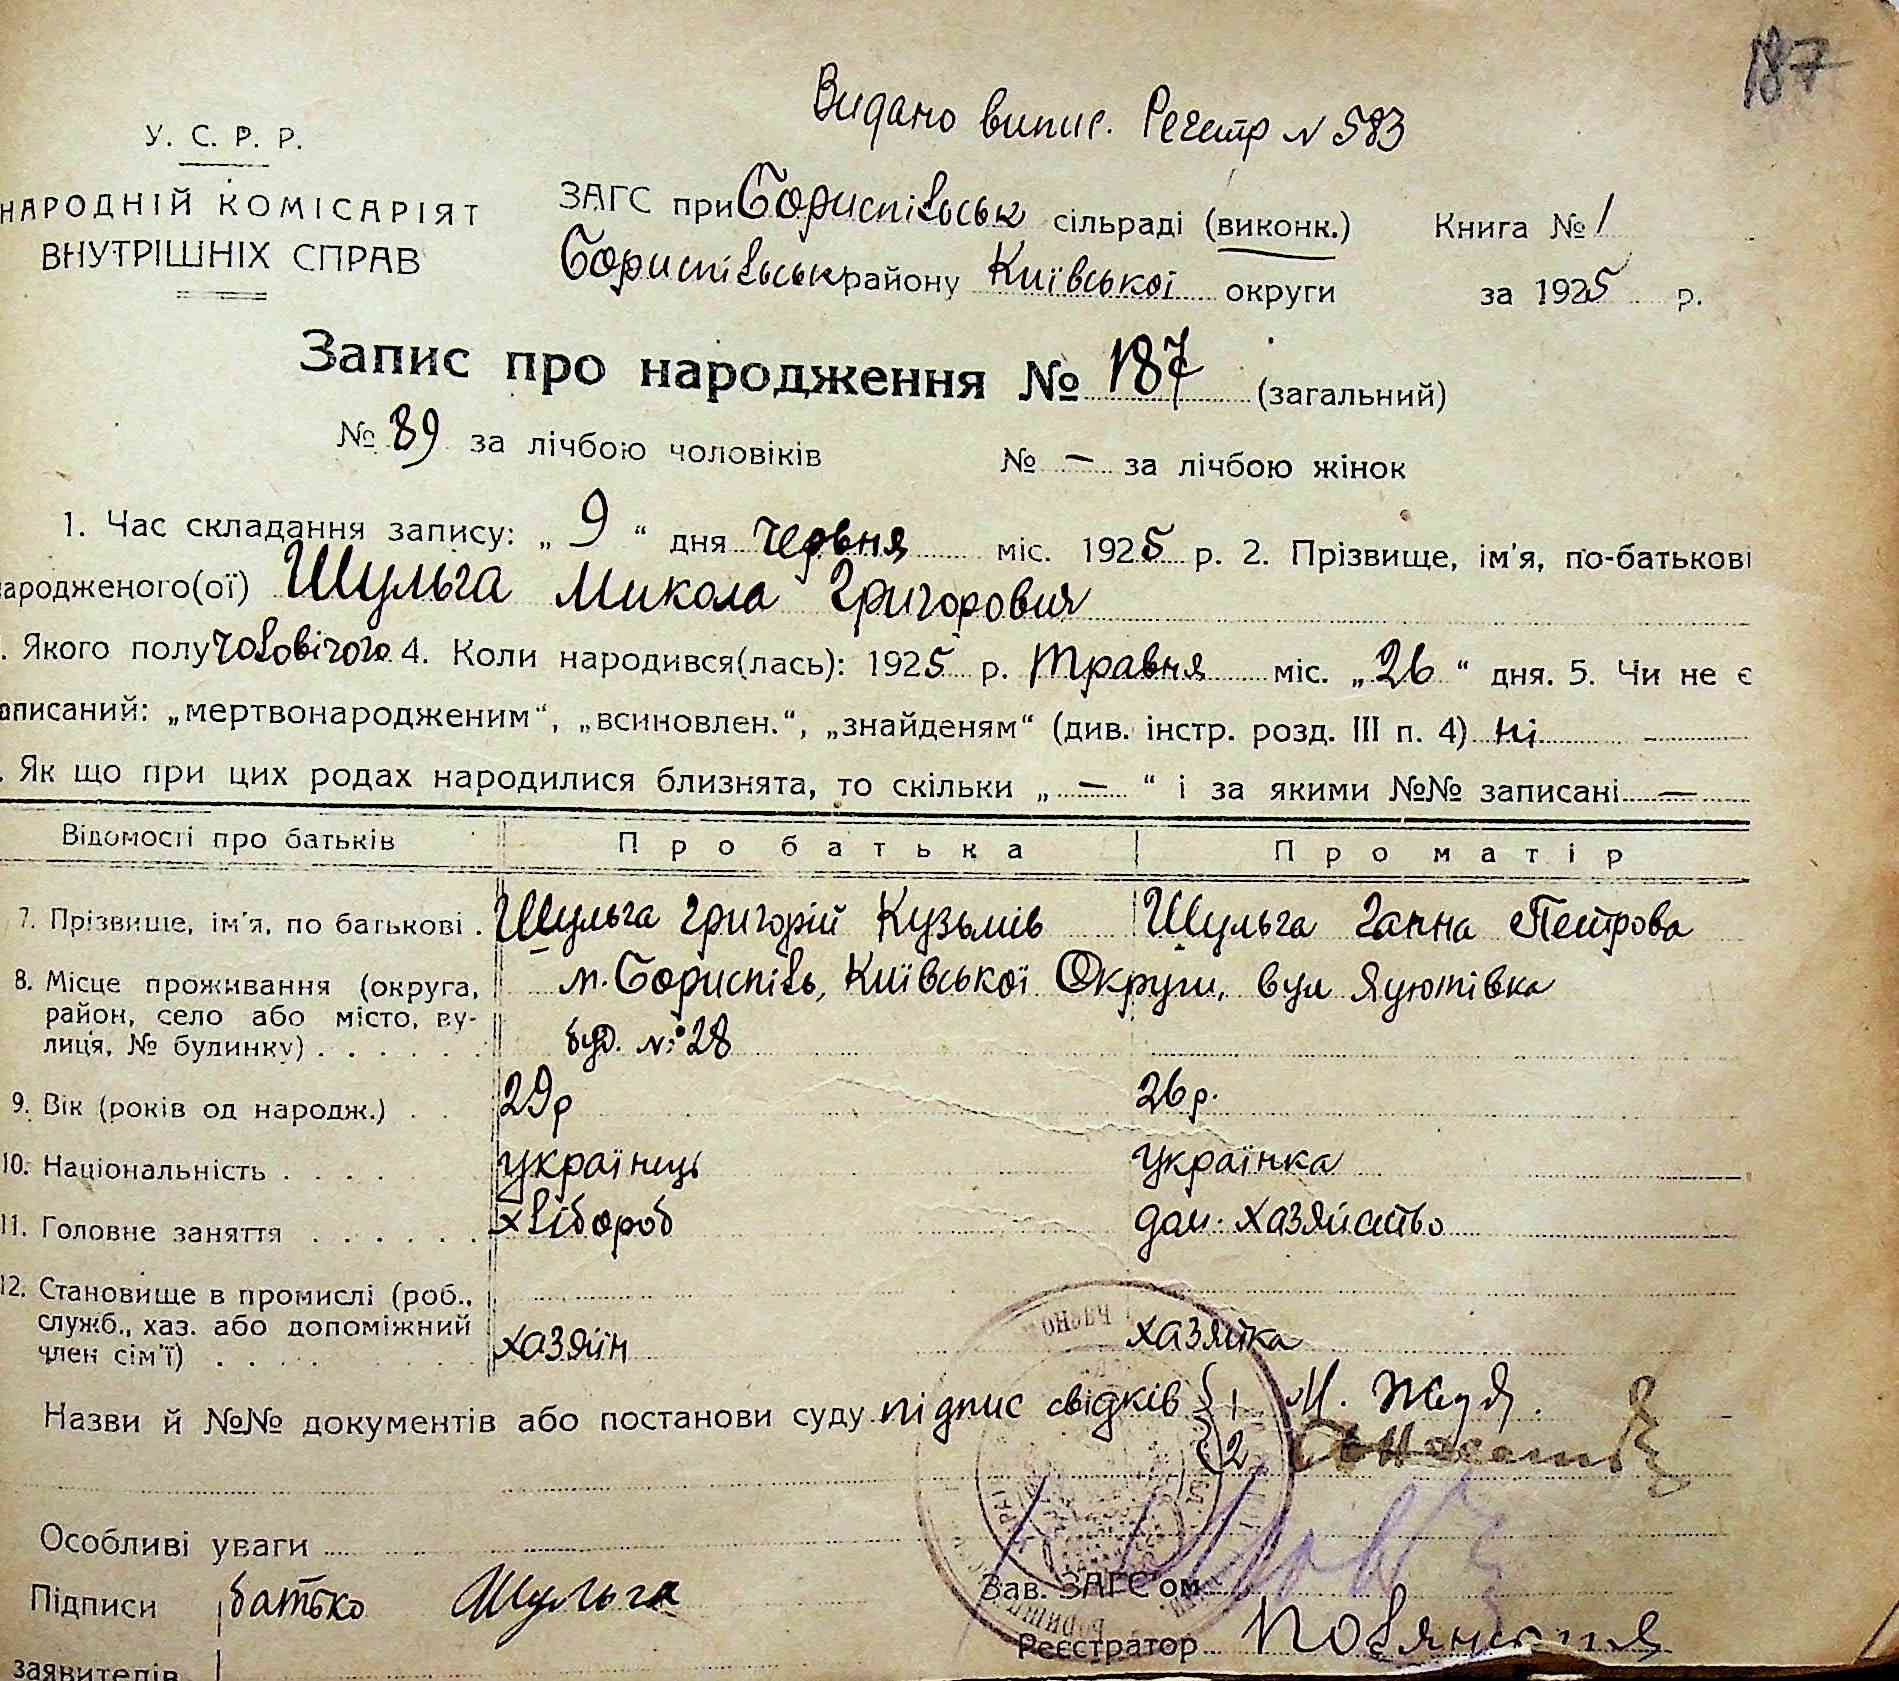 187
Видано випис. Реєстр N 583
У. С. Р. Р.
НАРОДНІЙ КОМІСАРІЯТ
ВНУТРІШНІХ СПРАВ
ЗАГС при Бориспільськ сільраді (виконк.) Книга № 1
Бориспільськ району Київської округи за 1925 р.
Запис про народження № 187 (загальний)
№ 89 за лічбою чоловіків № — за лічбою жінок
1. Час складання запису: „ 9 “ дня червня міс. 1925 р. 2. Прізвище, ім'я, по-батькові
народженого(ої) Шульга Микола Григорович
. Якого полу чоловічого 4. Коли народився(лась): 1925 р. травня міс. „ 26 “ дня. 5. Чи не є
аписаний: „мертвонародженим“, „всиновлен.“, „знайденям“ (див. інстр. розд. III п. 4) ні
. Як що при цих родах народилися близнята, то скільки „ — “ і за якими №№ записані —
Відомості про батьків Про батька Про матір
7. Прізвище, ім'я, по батькові . Шульга Григорій Кузьмів Шульга Ганна Петрова
8. Місце проживання (округа, район, село або місто, вулиця, № будинку) м. Бориспіль, Київської Округи, вул
буд. №: 28
9. Вік (років од народж.) 29р 26р.
10. Національність українець українка
11. Головне заняття хлібороб дом. хазяйство
12. Становище в промислі (роб., служб., хаз. або допоміжний член сім'ї) хазяїн хазяйка
Назви й №№ документів або постанови суду підпис свідків 1 М.
2
Особливі уваги
Підписи батько Шульга
Зав. ЗАГС'ом
Реєстратор
заявителів